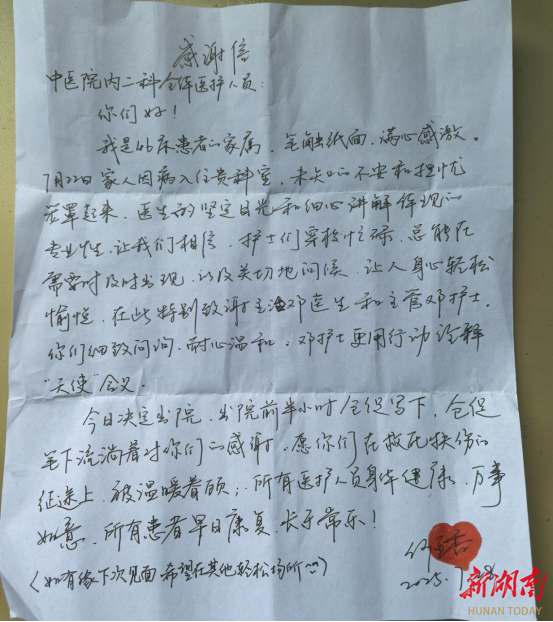 感谢信
中医院内二科全体医护人员:
你们好!
我是46床患者的家属,笔触纸面,满心感激。
7月22日家人因病入住贵科室,未知的不安和担忧
笼罩起来,医生的坚定目光和细心讲解体现的
专业性,让我们相信,护士们穿梭忙碌,总能在
需要时及时出现,以及关切地问候,让人身心轻松
愉悦,在此特别致谢主治邓医生和主管邓护士,
你们细致问询,耐心温和。邓护士更用行动诠释
“天使”含义。
今日决定出院,出院前半小时仓促写下,仓促
笔下流淌着对你们的感谢,愿你们在救死扶伤的
征途上,被温暖着顾;所有医护人员身体健康,万事
如意,所有患者早日康复,长乐常乐!
(如有缘下次见面希望在其他轻松场所~)
2025.7
新湖南
HUNAN TODAY